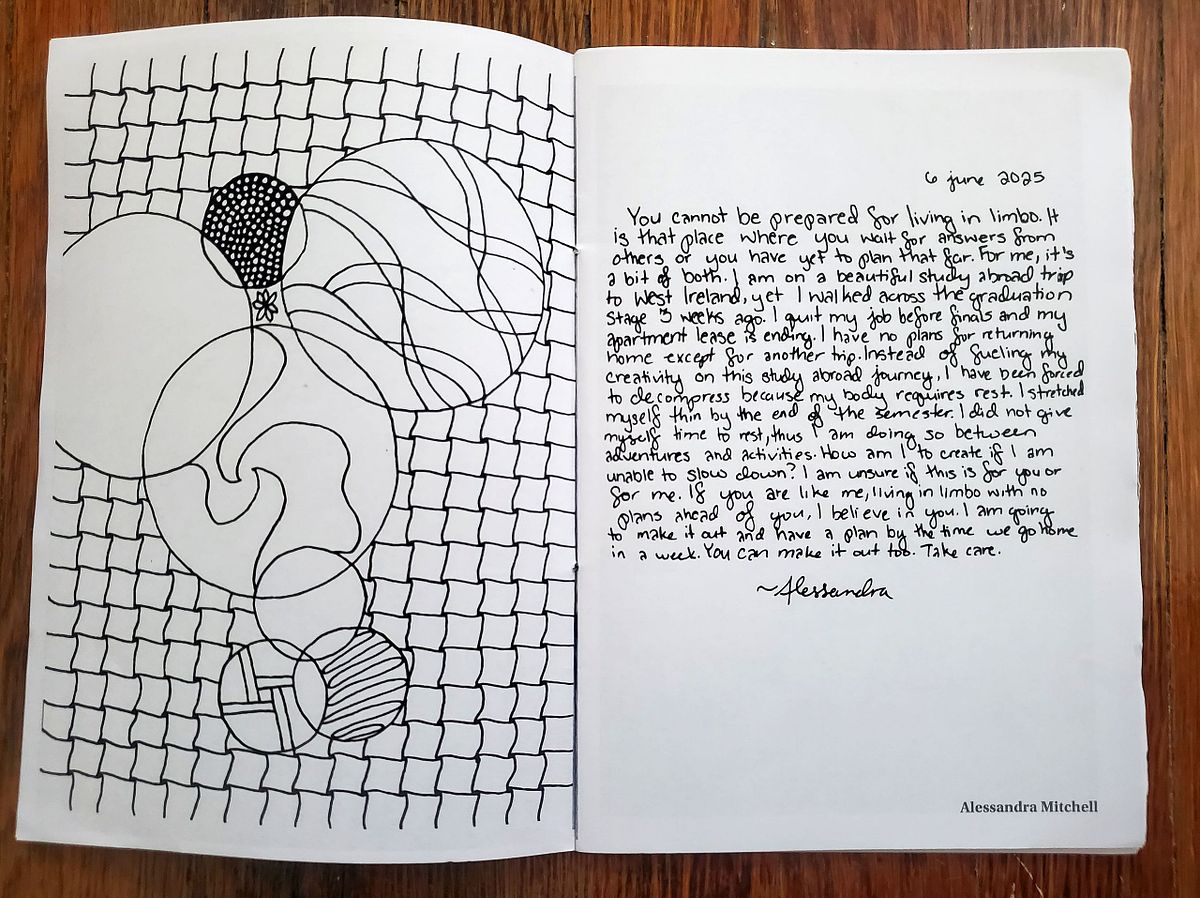 6 june 2025
You cannot be prepared for living in limbo. It
is that place where you wait for answers from
others or you have yet to plan that far. For me, it's
a bit of both. I am on a beautiful study abroad trip
to West Ireland, yet I walked across the graduation
stage 3 weeks ago. I quit my job before finals and my
apartment lease is ending. I have no plans for returning
home except for another trip. Instead of fueling my
creativity on this study abroad journey, I have been forced
to decompress because my body requires rest. I stretched
myself thin by the end of the semester. I did not give
myself time to rest, thus I am doing so between
adventures and activities. How am I to create if I am
unable to slow down? I am unsure if this is for you or
for me. If you are like me, living in limbo with no
plans ahead of you, I believe in you. I am going
to make it out and have a plan by the time we go home
in a week. You can make it out too. Take care.
~Alessandra
Alessandra Mitchell